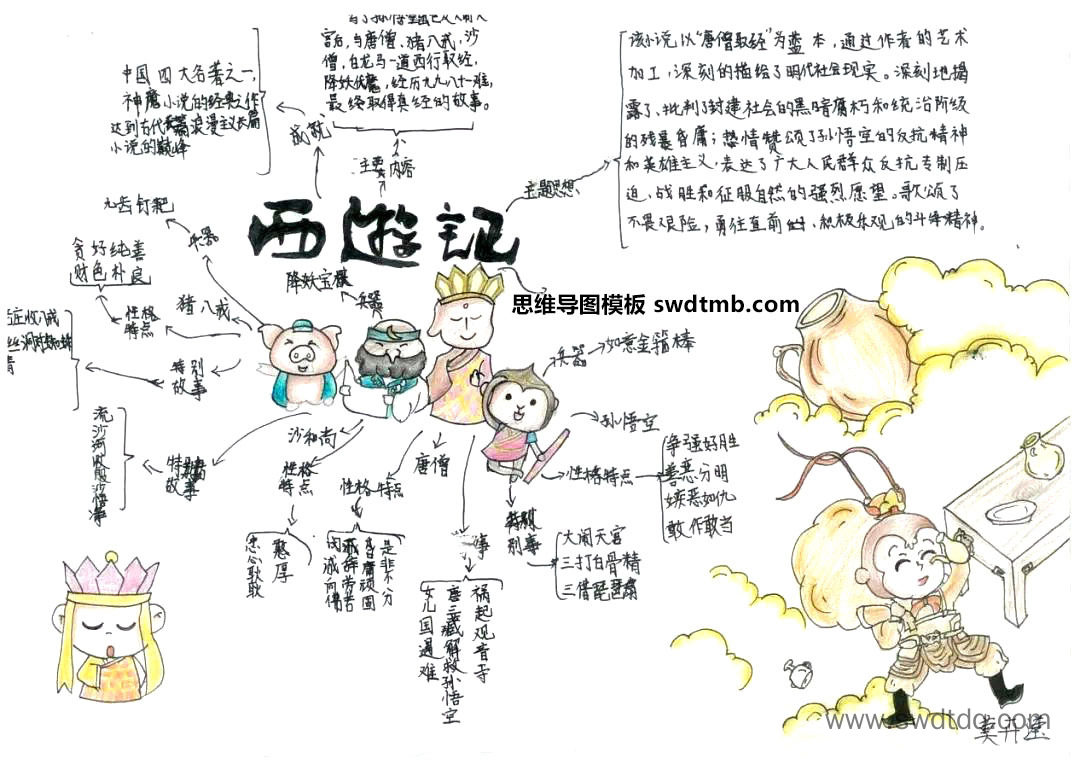 宫后,与唐僧、猪八戒、沙
僧,白龙马一道西行取经,
降妖伏魔,经历九九八十一难,
最终取得真经的故事。
主要内容
中国四大名著之一,
神魔小说的经典之作
达到古代长篇浪漫主义
小说的巅峰
成就
该小说以“唐僧取经”为蓝本,通过作者的艺术
加工,深刻的描绘了明代社会现实。深刻地揭
露了、批判了封建社会的黑暗腐朽和统治阶级
的残暴昏庸;热情赞颂了孙悟空的反抗精神
和英雄主义,表达了广大人民群众反抗专制压
迫、战胜和征服自然的强烈愿望。歌颂了
不畏艰险,勇往直前,积极乐观的斗争精神。
主题思想
西游记
思维导图模板 swdtmb.com
九齿钉耙
兵器
贪好纯善
财色朴良
性格
特点
猪八戒
特别
故事
降妖宝杖
兵器
兵器
如意金箍棒
孙悟空
性格特点
争强好胜
善恶分明
嫉恶如仇
敢作敢当
特别
事
大闹天宫
三打白骨精
三借琵琶扇
沙和尚
性格
特点
憨厚
忠心耿耿
流沙河收服沙悟净
故事
唐僧
性格特点
是非不分
昏庸顽固
事
祸起观音寺
唐三藏解救孙悟空
女儿国遇难
www.swdtdq.com